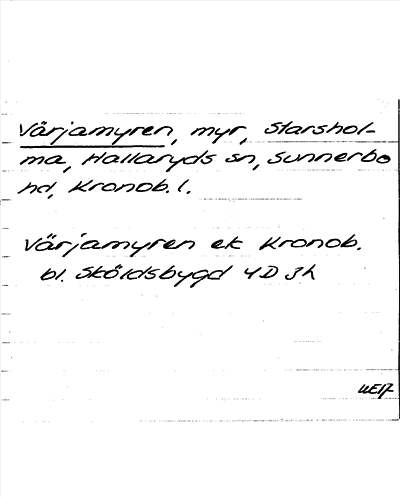 Värjamyren, myr, Starshol-
ma, Hallaryds sn, Sunnerbo
hd, Kronob. l.
Värjamyren ek Kronob.
bl. Sköldsbygd 4D 3h